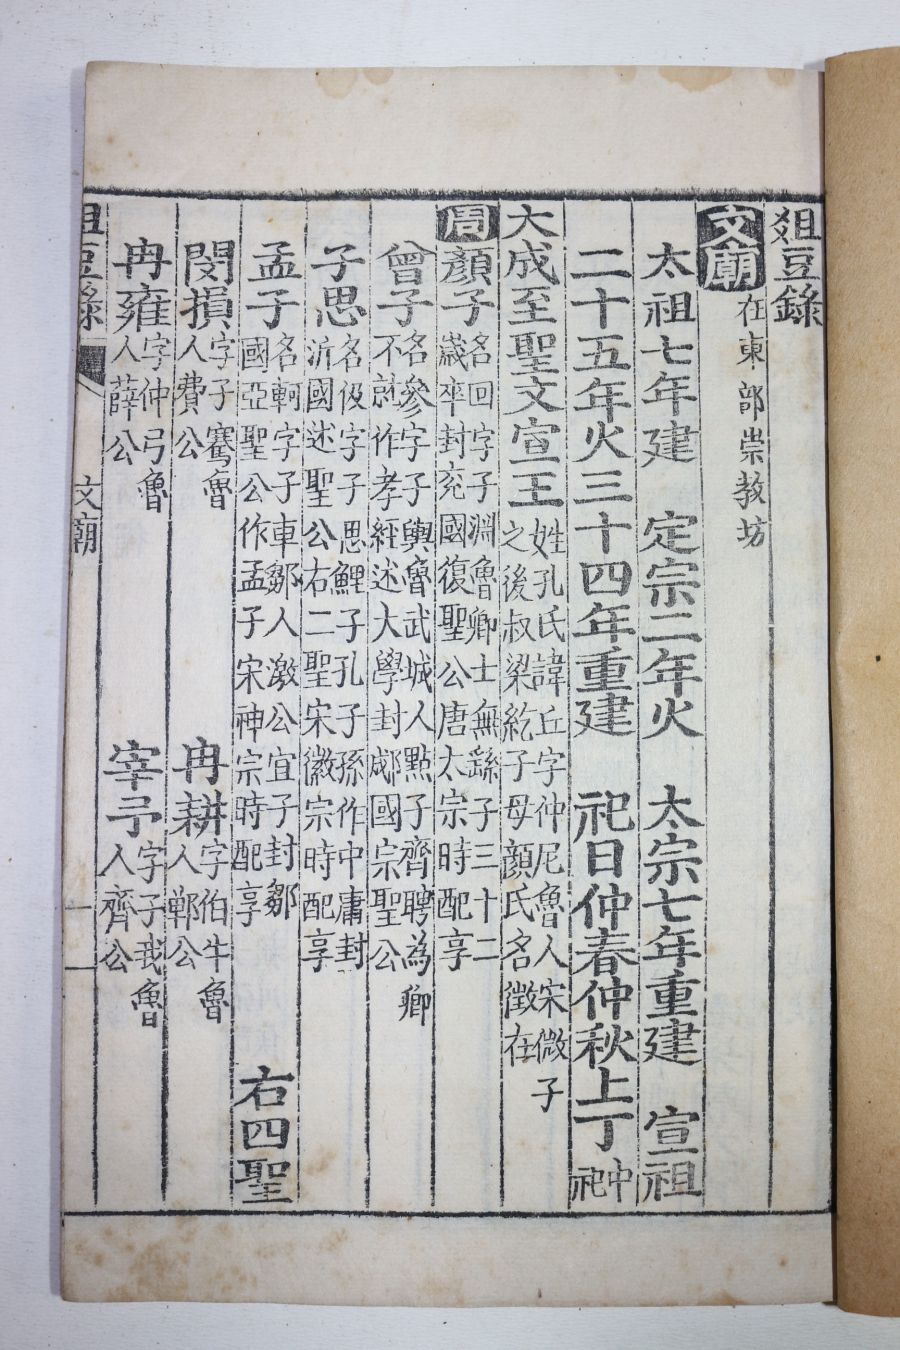 俎豆錄
文廟 在東部崇教坊
太祖七年建 定宗二年火 太宗七年重建 宣祖
二十五年火三十四年重建 祀日仲春仲秋上丁 中祀
大成至聖文宣王 姓孔氏諱丘字仲尼魯人宋微子之後叔梁紇子母顔氏名徵在
周 顔子 名回字子淵魯卿士無繇子三十二歲卒封兗國復聖公唐太宗時配享
曾子 名參字子輿魯武城人點子齊聘為卿不就作孝經述大學封郕國宗聖公
子思 名伋字子思鯉子孔子孫作中庸封沂國述聖公右二聖宋徽宗時配享
孟子 名軻字子車鄒人激公宜子封鄒國亞聖公作孟子宋神宗時配享 右四聖
閔損 字子騫魯人費公 冉耕 字伯牛魯人鄆公
冉雍 字仲弓魯人薛公 宰予 字子我魯人齊公
俎豆錄 文廟 一